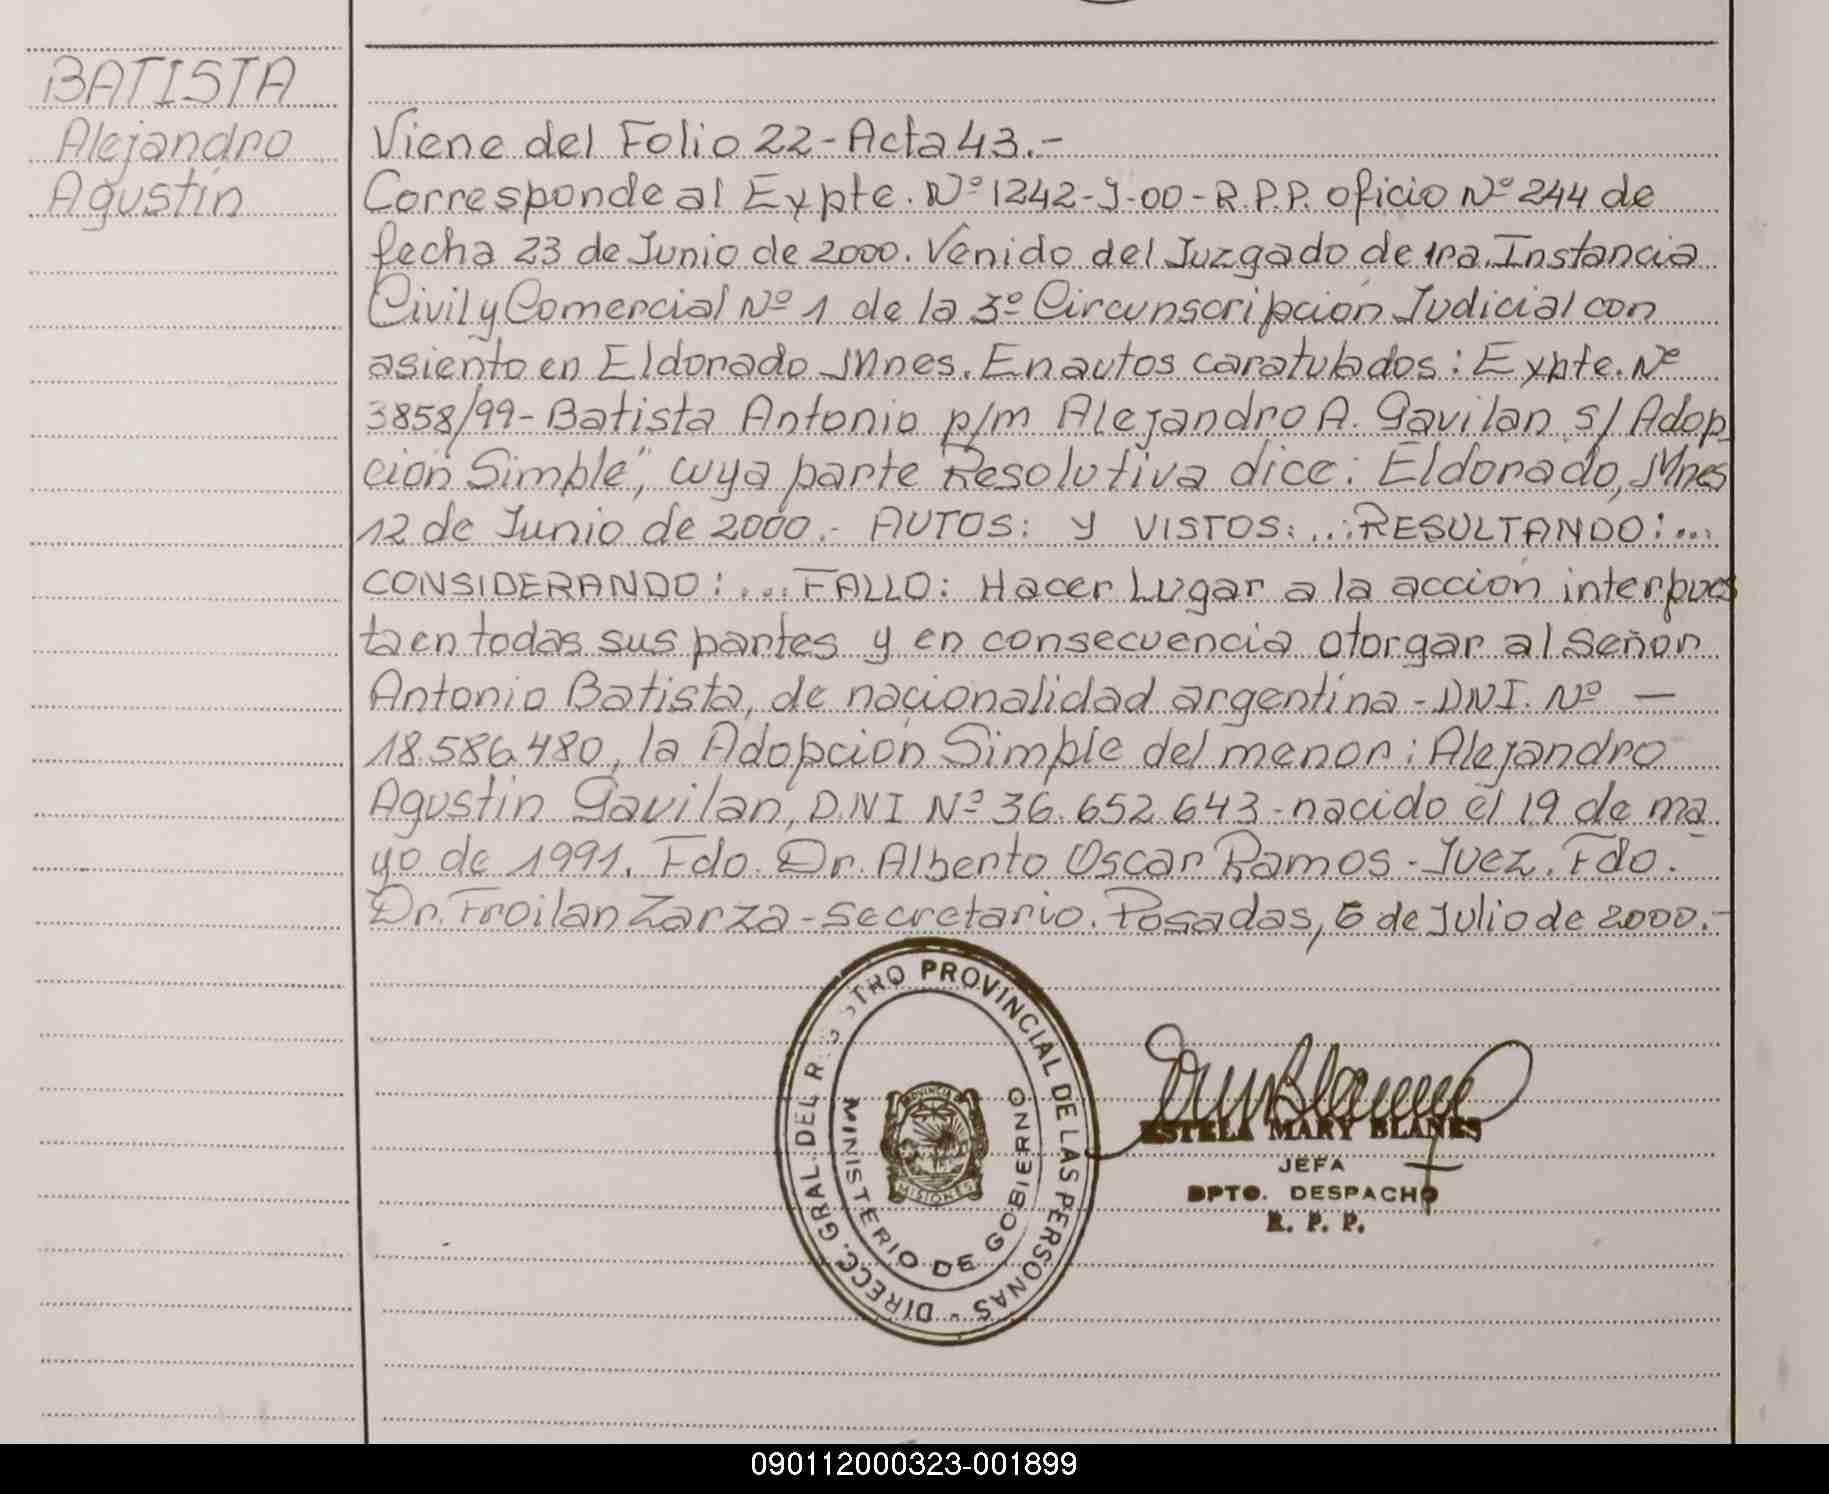 BATISTA
Alejandro
Agustín
Viene del Folio 22-Acta 43.-
Corresponde al Expte. Nº 1242-J-00-R.P.P. oficio Nº 244 de
fecha 23 de Junio de 2000. Venido del Juzgado de 1ra. Instancia
Civil y Comercial Nº 1 de la 3º Circunscripción Judicial con
asiento en Eldorado Mnes. En autos caratulados: Expte. Nº
3858/99-Batista Antonio p/m Alejandro A. Gavilan s/Adop
ción Simple", cuya parte Resolutiva dice: Eldorado, Mnes
12 de Junio de 2000.- AUTOS: Y VISTOS:...RESULTANDO:...
CONSIDERANDO:...FALLO: Hacer Lugar a la acción interpues
ta en todas sus partes y en consecuencia otorgar al Señor
Antonio Batista, de nacionalidad argentina-DNI. Nº —
18.586.480, la Adopción Simple del menor: Alejandro
Agustín Gavilan, D.N.I Nº 36.652.643-nacido el 19 de ma
yo de 1991. Fdo. Dr. Alberto Oscar Ramos-Juez. Fdo.-
Dr. Froilan Zarza-Secretario. Posadas, 6 de Julio de 2000.-
DIRECC. GRAL. DEL REGISTRO PROVINCIAL DE LAS PERSONAS -
MINISTERIO DE GOBIERNO
PROVINCIA DE
MISIONES
ESTELA MARY BLANES
JEFA
DPTO. DESPACHO
R. P. P.
090112000323-001899